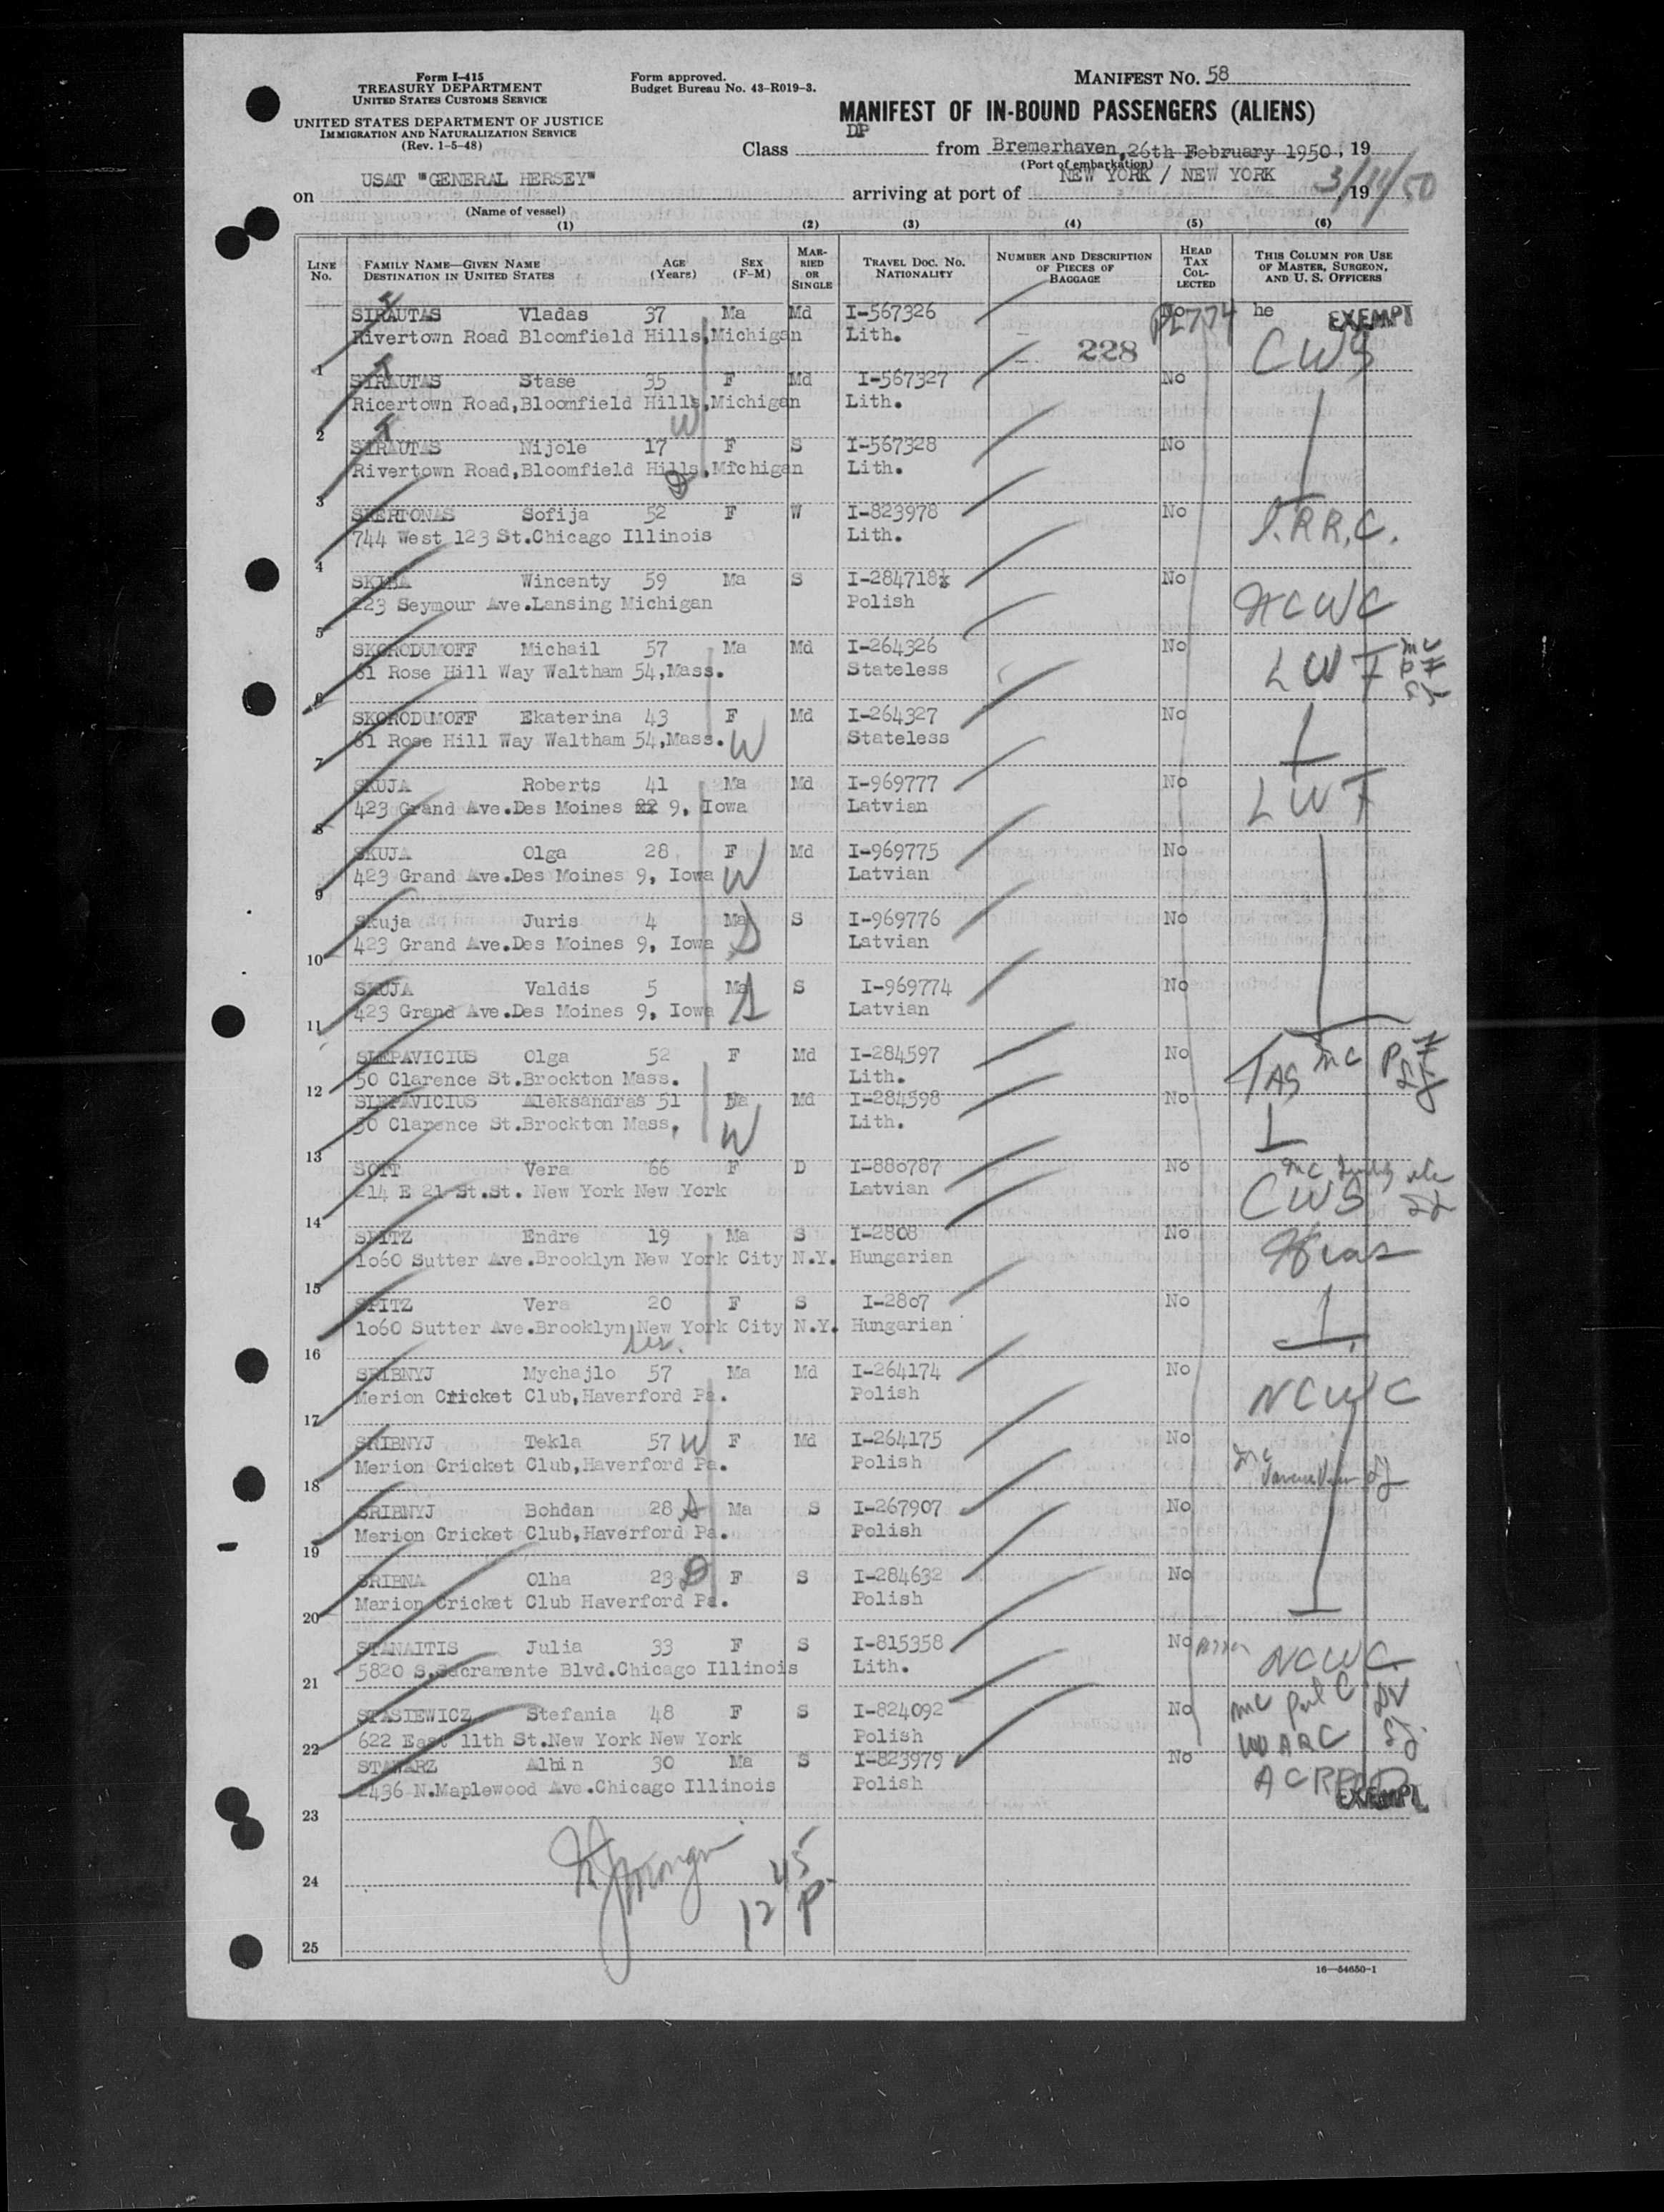 Form I-415
TREASURY DEPARTMENT
UNITED STATES CUSTOMS SERVICE
UNITED STATES DEPARTMENT OF JUSTICE
IMMIGRATION AND NATURALIZATION SERVICE
(Rev. 1-5-48)
Form approved.
Budget Bureau No. 43-R019-3.
MANIFEST NO. 58
MANIFEST OF IN-BOUND PASSENGERS (ALIENS)
Class DP from Bremerhaven, 26th February 1950, 19
(Port of embarkation)
on USAT "GENERAL HERSEY" arriving at port of NEW YORK / NEW YORK 3/11/50, 19
(Name of vessel)
(1) (2) (3) (4) (5) (6)
LINE No. FAMILY NAME—GIVEN NAME DESTINATION IN UNITED STATES AGE (Years) SEX (F-M) MARRIED OR SINGLE TRAVEL DOC. NO. NATIONALITY NUMBER AND DESCRIPTION OF PIECES OF BAGGAGE HEAD TAX COLLECTED THIS COLUMN FOR USE OF MASTER, SURGEON, AND U. S. OFFICERS
SIRAUTAS Vladas 37 Ma Md I-567326 he EXEMPT
Rivertown Road Bloomfield Hills,Michigan Lith. 228 CWS
1
SIRAUTAS Stase 35 F Md I-567327 No
Ricertown Road,Bloomfield Hills,Michigan Lith.
2 W
SIRAUTAS Nijole 17 F S I-567328 No
Rivertown Road,Bloomfield Hills,Michigan Lith.
3 D
SKERTONAS Sofija 52 F W I-823978 No I.R.R.C.
744 West 123 St.Chicago Illinois Lith.
4
SKIBA Wincenty 59 Ma S I-284718x No NCWC
223 Seymour Ave.Lansing Michigan Polish
5
SKORODUMOFF Michail 57 Ma Md I-264326 No LWF
61 Rose Hill Way Waltham 54,Mass. Stateless
6
SKORODUMOFF Ekaterina 43 F Md I-264327 No
61 Rose Hill Way Waltham 54,Mass. W Stateless
7
SKUJA Roberts 41 Ma Md I-969777 No LWF
423 Grand Ave.Des Moines 22 9, Iowa Latvian
8
SKUJA Olga 28 F Md I-969775 No
423 Grand Ave.Des Moines 9, Iowa W Latvian
9
Skuja Juris 4 Ma S I-969776 No
423 Grand Ave.Des Moines 9, Iowa S Latvian
10
SKUJA Valdis 5 Ma S I-969774 No
423 Grand Ave.Des Moines 9, Iowa S Latvian
11
SLEPAVICIUS Olga 52 F Md I-284597 No
50 Clarence St.Brockton Mass. Lith.
12
SLEPAVICIUS Aleksandras 51 Ma Md I-284598 No
50 Clarence St.Brockton Mass, W Lith.
13
SOTT Vera 66 F D I-880787 No
214 E 21 St.St. New York New York Latvian CWS
14
SPITZ Endre 19 Ma S I-2808 No Hias
1060 Sutter Ave.Brooklyn New York City N.Y. Hungarian
15
SPITZ Vera 20 F S I-2807 No
1060 Sutter Ave.Brooklyn New York City N.Y. Hungarian
16 sis.
SRIBNYJ Mychajlo 57 Ma Md I-264174 No
Merion Cricket Club,Haverford Pa. Polish NCWC
17
SRIBNYJ Tekla 57 W F Md I-264175 No
Merion Cricket Club,Haverford Pa. Polish
18
SRIBNYJ Bohdan 28 S Ma S I-267907 No
Merion Cricket Club,Haverford Pa. Polish
19
SRIBNA Olha 23 D F S I-284632 No
Marion Cricket Club Haverford Pa. Polish
20
STANAITIS Julia 33 F S I-815358 No NCWC
5820 S.Sacramente Blvd.Chicago Illinois Lith.
21
STASIEWICZ Stefania 48 F S I-824092 No
622 East 11th St.New York New York Polish WARC
22
STAWARZ Albin 30 Ma S I-823979 No
2436 N.Maplewood Ave.Chicago Illinois Polish EXEMPT
23
24 12 45 P.
25
16—54650-1